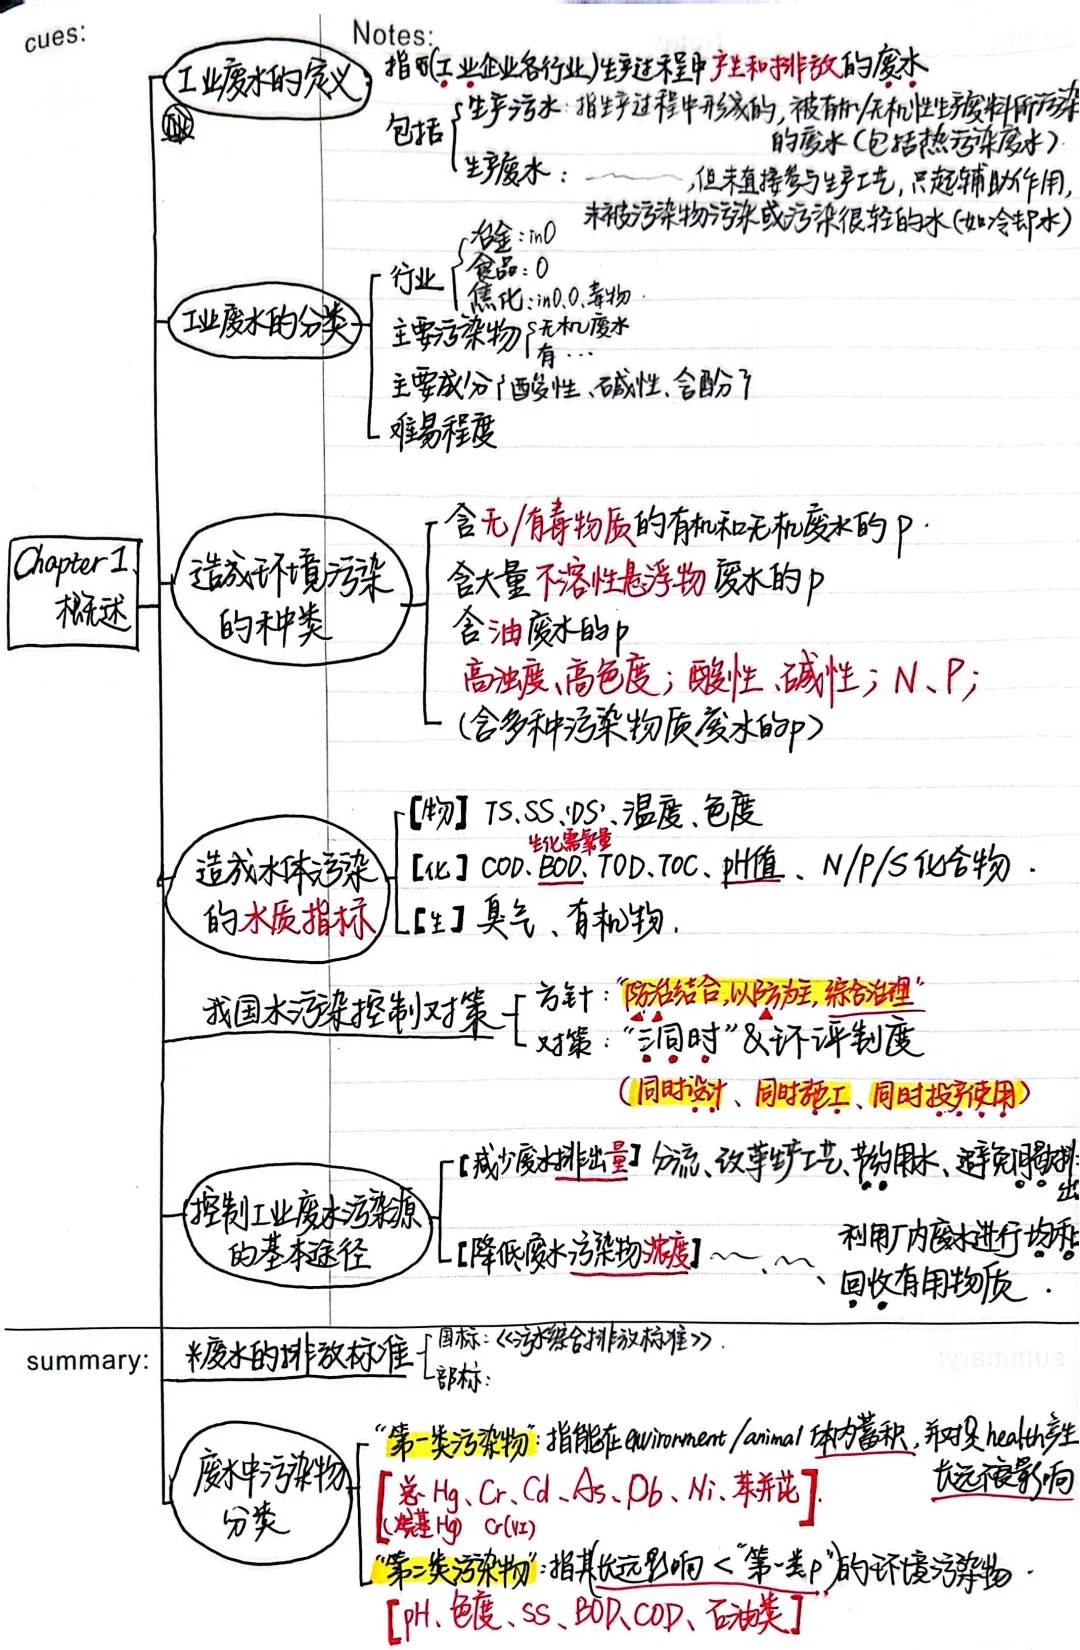 cues:
Notes:
工业废水的定义
指(工业企业各行业)生产过程中产生和排放的废水
包括
生产污水:指生产过程中形成的,被有机/无机性生产废料所污染
的废水(包括热污染废水)
生产废水:
,但未直接参与生产工艺,只起辅助作用,
未被污染物污染或污染很轻的水(如冷却水)
工业废水的分类
行业
冶金:inO
食品:O
焦化:inO、O、毒物.
主要污染物
无机废水
有…
主要成分{酸性、碱性、含酚}
难易程度
Chapter 1、
概述
造成环境污染
的种类
含无/有毒物质的有机和无机废水的p.
含大量不溶性悬浮物废水的p
含油废水的p
高浊度、高色度;酸性、碱性;N、P;
(含多种污染物质废水的p)
造成水体污染
的水质指标
【物】TS、SS、DS、温度、色度
生化需氧量
【化】COD、BOD、TOD、TOC、pH值、N/P/S化合物.
【生】臭气、有机物.
我国水污染控制对策
方针:"防治结合,以防为主,综合治理"
对策:"三同时"&环评制度
(同时设计、同时施工、同时投产使用)
控制工业废水污染源
的基本途径
【减少废水排出量】分流、改革生产工艺、节约用水、避免间歇排
出
【降低废水污染物浓度】
利用厂内废水进行均和
回收有用物质.
summary:
*废水的排放标准
国标:《污水综合排放标准》.
部标:
废水中污染物
分类
"第一类污染物":指能在environment/animal体内蓄积,并对其health产生
长远不良影响
[总Hg、Cr、Cd、As、Pb、Ni、苯并芘].
(烷基Hg) Cr(VI)
"第二类污染物":指其(长远影响<"第一类p")的环境污染物.
[pH、色度、SS、BOD、COD、石油类]